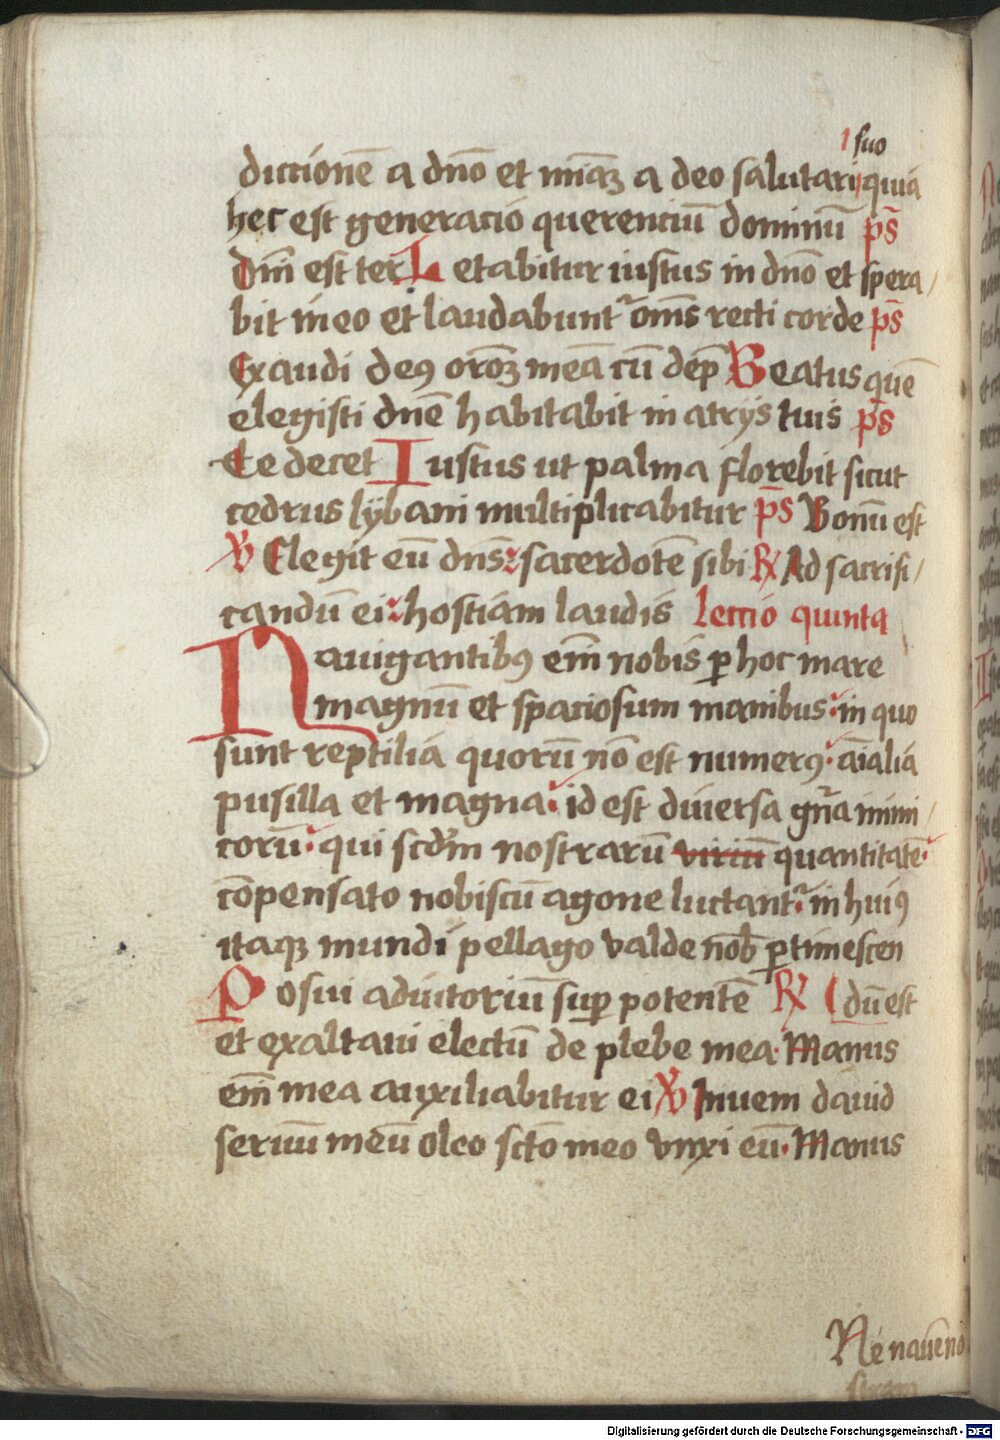 suo
dictionē a dn̄o et mīaꝫ a deo salutari quia
hec est generacio querenciū dominū ps̄
Dm̄i est ter Letabitur iustus in dn̄o et spera
bit in eo et laudabunt᷑ om̄s recti corde ps̄
Exaudi deꝰ oroꝫ meā cū dep̄ Beatus quē
elegisti dn̄e habitabit in atrijs tuis ps̄
Te decet Iustus ut palma florebit sicut
cedrus lybani multiplicabitur ps̄ Bonū est
℣ Elegit eū dn̄s sacerdotē sibi ℟ Ad sacrifi
candū ei hostiam laudis Leccio quinta
Nauigantibꝰ em̄ nobis ꝑ hoc mare
magnū et spaciosum manibus in quo
sunt reptilia quorū nō est numerꝰ aīalia
pusilla et magna id est diuersa gn̄a inimi
corū qui scd̄m nostrarū viriū quantitatē
cōpensato nobiscū agone luctant᷑ in huiꝰ
itaqꝫ mundi pellago valde nob̄ ꝑtimescen
Posui adiutoriū suꝑ potentē ℟ dū est
et exaltaui electū de plebe mea Manus
em̄ mea auxiliabitur ei ℣ Inuem dauid
seruū meū oleo scto meo vnxi eū Manus
Digitalisierung gefördert durch die Deutsche Forschungsgemeinschaft - DFG